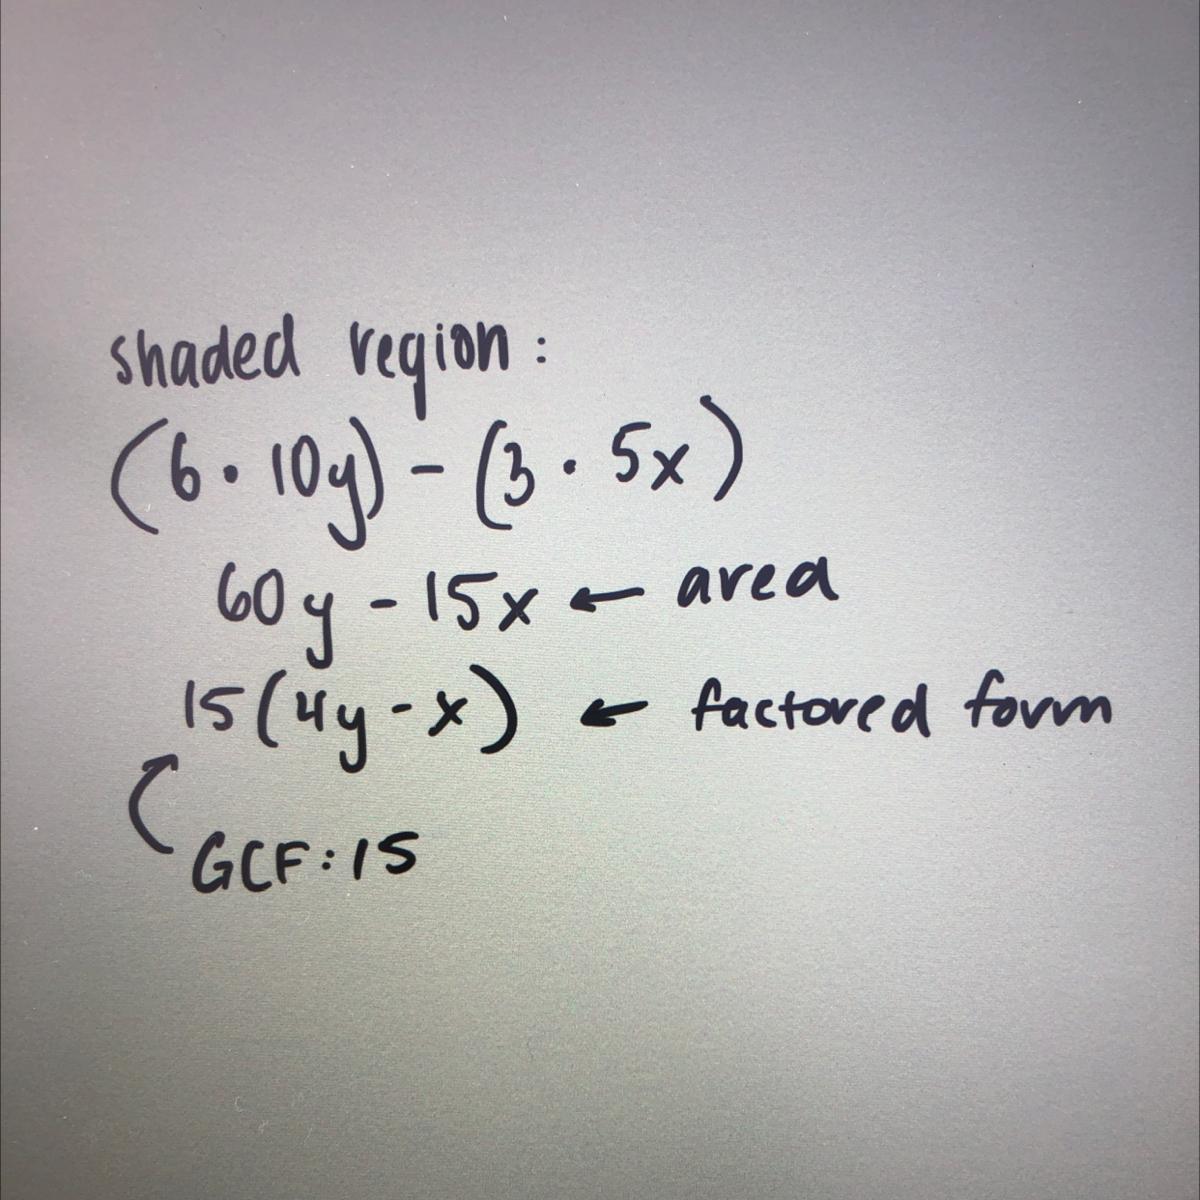 shaded region:
(6 · 10y) - (3 · 5x)
60y - 15x ← area
15(4y - x) ← factored form
GCF: 15